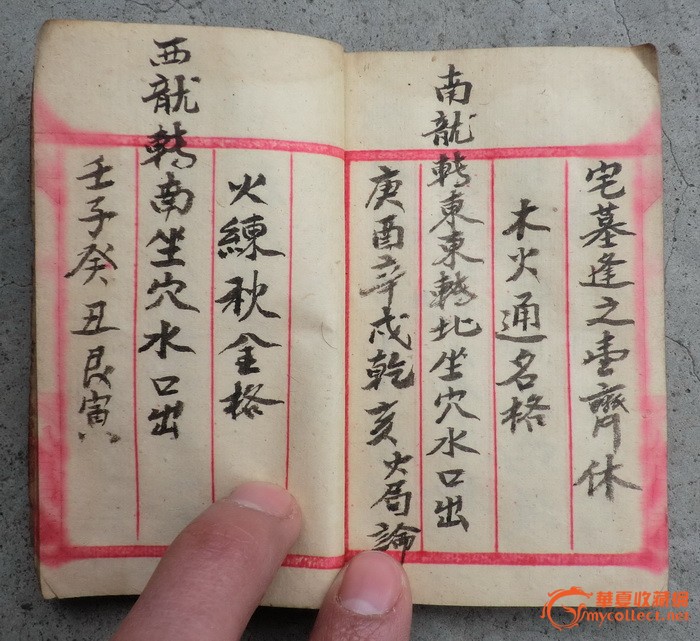 宅墓逢之齊休
木火通名格
南龍轉東東轉北坐穴水口出
庚酉辛戌乾亥火局論
火練秋金格
西龍轉南坐穴水口出
壬子癸丑艮寅
華夏收藏網
mycollect.net